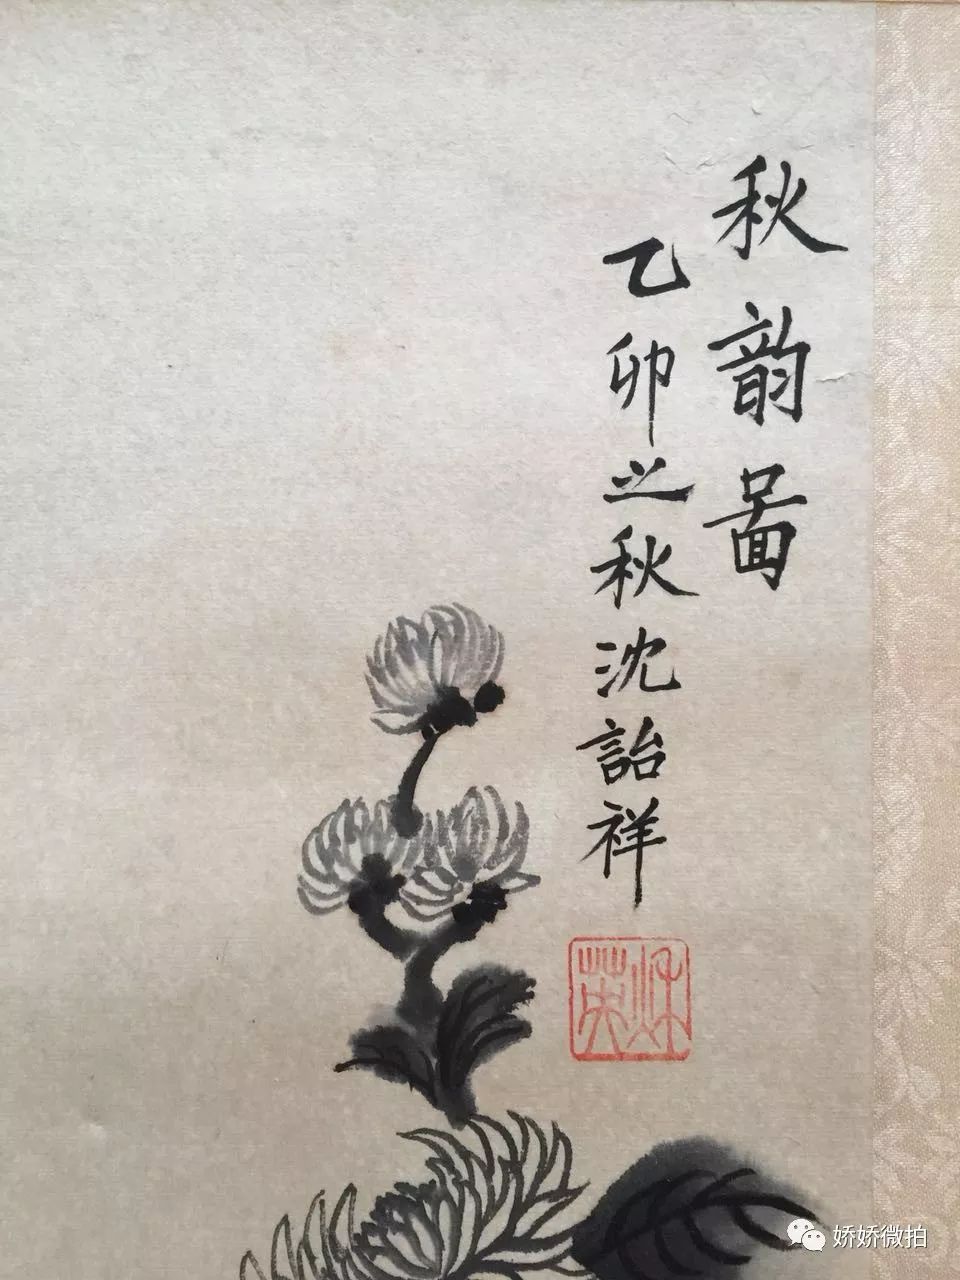 秋韵啚
乙卯之秋沈詒祥
娇娇微拍